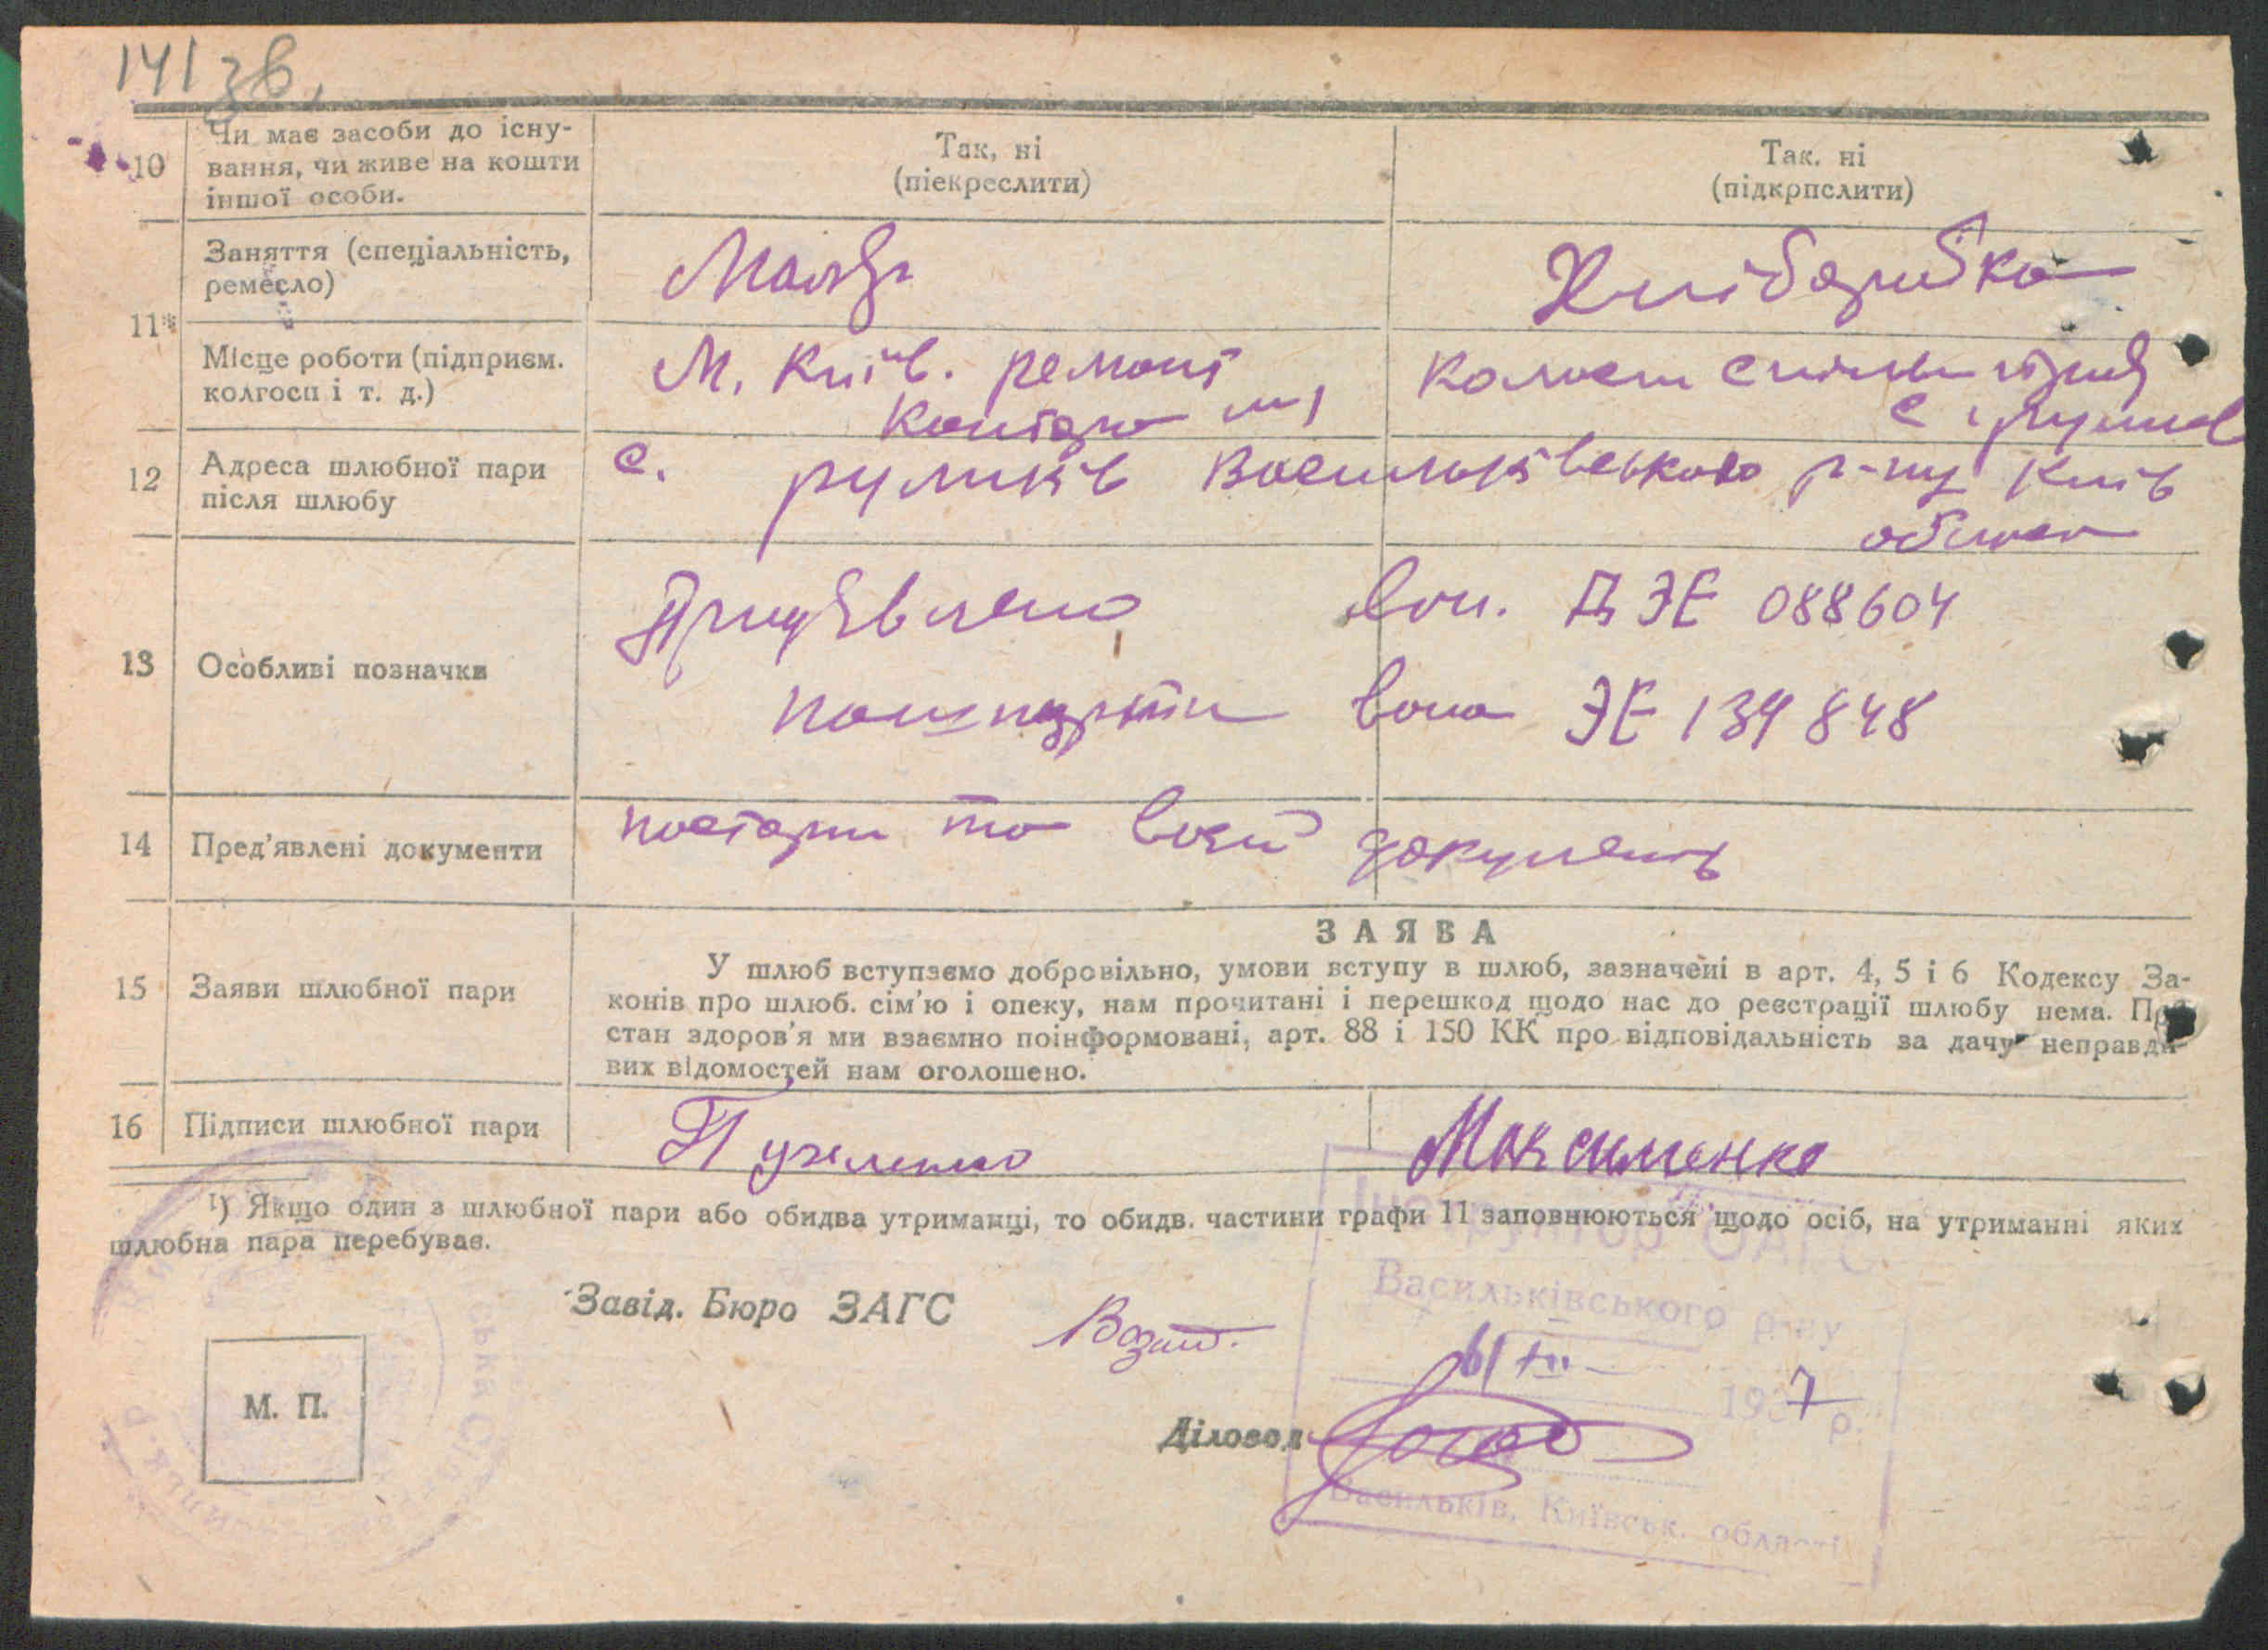 141 зв.
10 Чи має засоби до існу-
вання, чи живе на кошти
іншої особи.
Так, ні
(піекреслити)
Так. ні
(підкрпслити)
11*
Заняття (спеціальність,
ремесло)
Маляр
Хліборобка
Місце роботи (підприєм.
колгосп і т. д.)
М. Київ. ремонт
Контора
колгосп
с
12 Адреса шлюбної пари
після шлюбу
с. руликів Васильківського р-ну Київ
области
13 Особливі позначки
Придявлено він. ДЭЕ 088604
пашпорти вона ЭЕ 139848
14 Пред'явлені документи
паспорти та воєн документ
15 Заяви шлюбної пари
ЗАЯВА
У шлюб вступаємо добровільно, умови вступу в шлюб, зазначені в арт. 4, 5 і 6 Кодексу За-
конів про шлюб. сім'ю і опеку, нам прочитані і перешкод щодо нас до реєстрації шлюбу нема. Про
стан здоров'я ми взаємно поінформовані, арт. 88 і 150 КК про відповідальність за дачу неправди-
вих відомостей нам оголошено.
16 Підписи шлюбної пари
Максименко
¹) Якщо один з шлюбної пари або обидва утриманці, то обидв. частини графи 11 заповнюються щодо осіб, на утриманні яких
шлюбна пара перебуває.
Інструктор ОАГС
Васильківського р-ну
Завід. Бюро ЗАГС
1937 р.
М. П.
Діловод
Васильків, Київськ. області